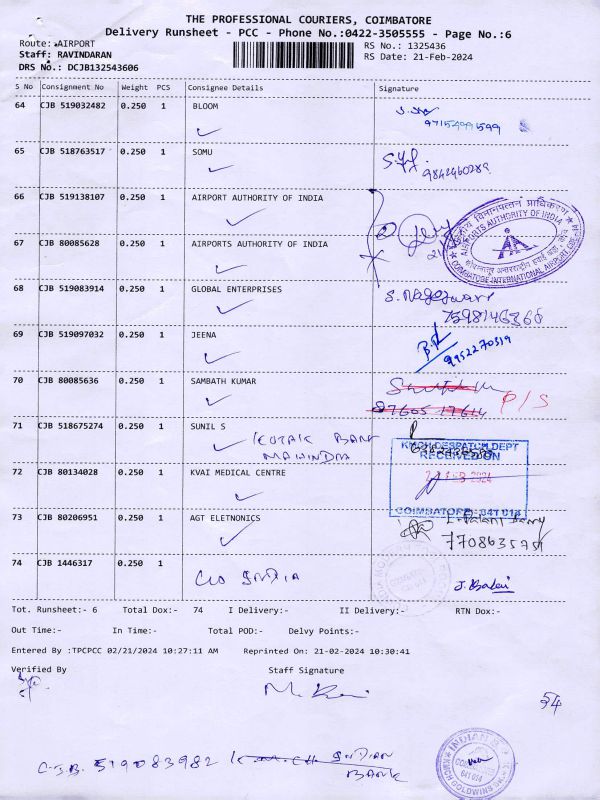 THE PROFESSIONAL COURIERS, COIMBATORE
Delivery Runsheet - PCC - Phone No.:0422-3505555 - Page No.:6
Route: AIRPORT RS No.: 1325436
Staff: RAVINDARAN RS Date: 21-Feb-2024
DRS No.: DCJB132543606
S No Consignment No Weight PCS Consignee Details Signature
64 CJB 519032482 0.250 1 BLOOM
97154991599
65 CJB 518763517 0.250 1 SOMU
9842460289
66 CJB 519138107 0.250 1 AIRPORT AUTHORITY OF INDIA
AIRPORTS AUTHORITY OF INDIA
COIMBATORE INTERNATIONAL AIRPORT
67 CJB 80085628 0.250 1 AIRPORTS AUTHORITY OF INDIA
68 CJB 519083914 0.250 1 GLOBAL ENTERPRISES S. Nageswari
7598146366
69 CJB 519097032 0.250 1 JEENA
9952270519
70 CJB 80085636 0.250 1 SAMBATH KUMAR
87605 17614 P/S
71 CJB 518675274 0.250 1 SUNIL S
KOTAK BANK
MAHINDRA
KMCH DESPATCH DEPT
RECEPTION
COIMBATORE - 641 014
72 CJB 80134028 0.250 1 KVAI MEDICAL CENTRE
73 CJB 80206951 0.250 1 AGT ELETNONICS
74 CJB 1446317 0.250 1
C/O INDIA J. Balaji
Tot. Runsheet:- 6 Total Dox:- 74 I Delivery:- II Delivery:- RTN Dox:-
Out Time:- In Time:- Total POD:- Delvy Points:-
Entered By :TPCPCC 02/21/2024 10:27:11 AM Reprinted On: 21-02-2024 10:30:41
Verified By Staff Signature
54
CJB. 519083982 INDIAN
BANK